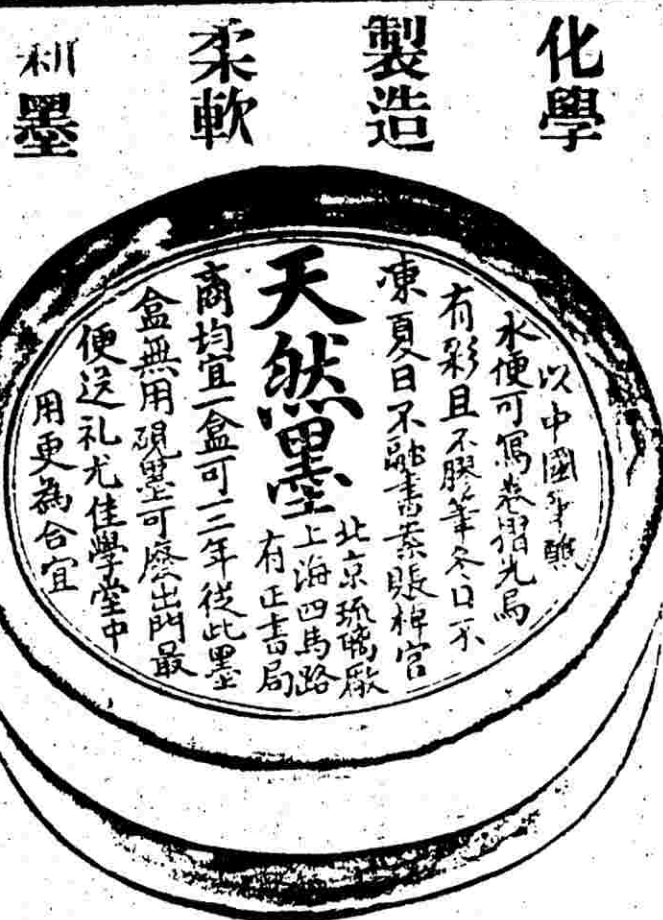 化學
製造
柔軟
利墨
以中國筆醮
水便可寫卷摺光烏
有彩且不膠筆冬日不
凍夏日不融書案賬棹官
天然墨
北京琉璃廠
上海四馬路
有正書局
商均宜一盒可一二年從此墨
盒無用硯墨可廢出門最
便送礼尤佳學堂中
用更為合宜